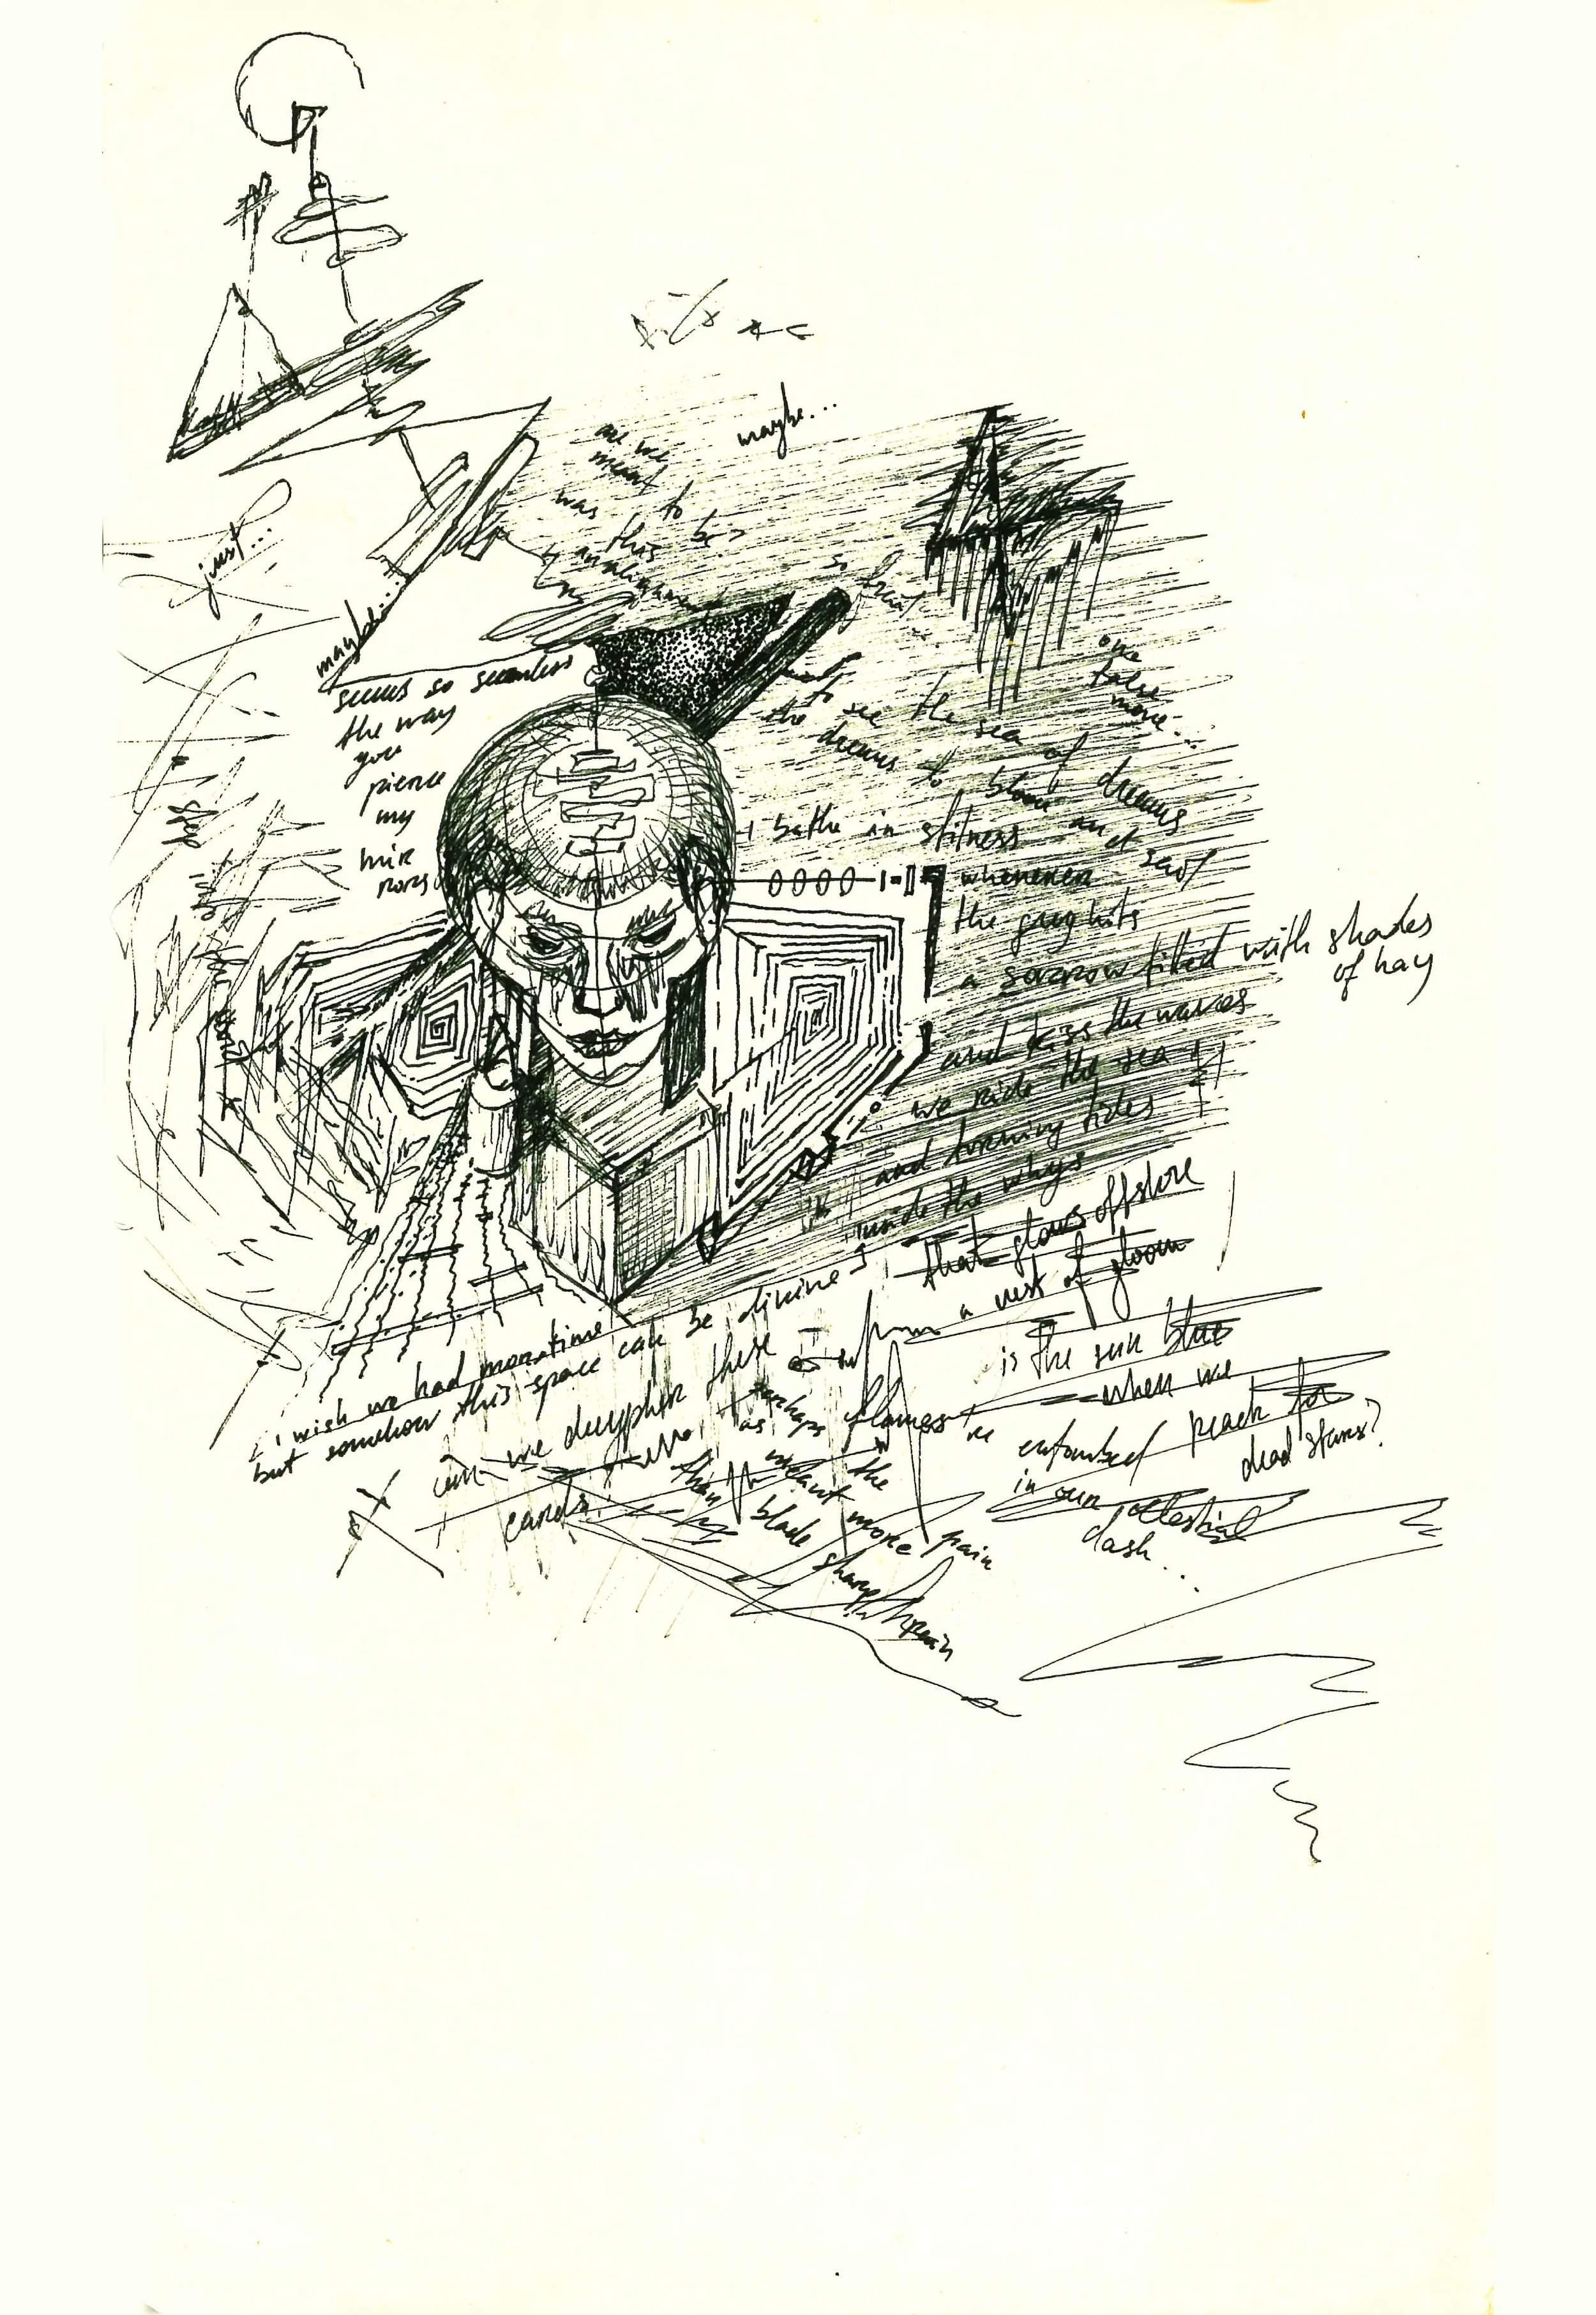 maybe...
are we
meant
to
be?
was
this
so
just...
maybe...
seems so seamless
the way
you
pierce
my
mir
rors
step
one
false
move...
to see the sea of dreams
the dreams to bloom and
i bathe in
whenever
the grey hits
a sorrow filled with shades
of hay
and kiss the waves
we ride the sea
and turning tides
inside the whys
that glows offshore
a nest of gloom
from
is the sun blue
when we
reach for
dead stars?
i wish we had more time
but somehow this space can be divine
can we decypher these
cards
perhaps
as
flames
the
meant more pain
than
blade
sharp
entombed
in our celestial
dash...